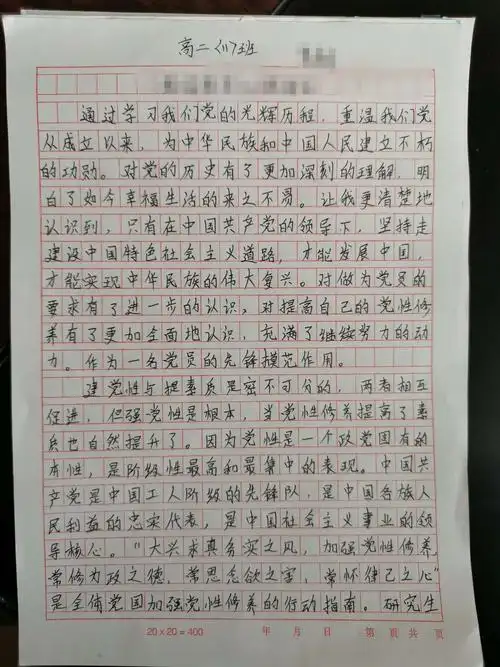 高二〈11〉班
通过学习我们党的光辉历程，重温我们党
从成立以来，为中华民族和中国人民建立不朽
的功勋。对党的历史有了更加深刻的理解，明
白了如今幸福生活的来之不易。让我更清楚地
认识到，只有在中国共产党的领导下，坚持走
建设中国特色社会主义道路，才能发展中国，
才能实现中华民族的伟大复兴。对做为党员的
要求有了进一步的认识，对提高自己的党性修
养有了更加全面地认识，充满了继续努力的动
力。作为一名党员的先锋模范作用。
建党性与提素质是密不可分的，两者相互
促进，但强党性是根本，当党性修养提高了素
质也自然提升了。因为党性是一个政党固有的
本性，是阶级性最高和最集中的表现。中国共
产党是中国工人阶级的先锋队，是中国各族人
民利益的忠实代表，是中国社会主义事业的领
导核心。"大兴求真务实之风，加强党性修养，
常修为政之德，常思贪欲之害，常怀律己之心"
是全体党国加强党性修养的行动指南。研究生
20×20=400 年 月 日 第 页 共 页